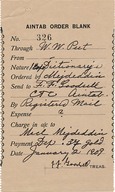 AINTAB ORDER BLANK
No. 326
Through W. W. Peet
From
Nature 1 Dictionary
Ordered by Mejdeddin
Send to F. F. Goodsell
C T C Aintab
By Registered Mail
Expense
Charge in a/c to
Mejdeddin
Payment
Date January 2
TREAS.